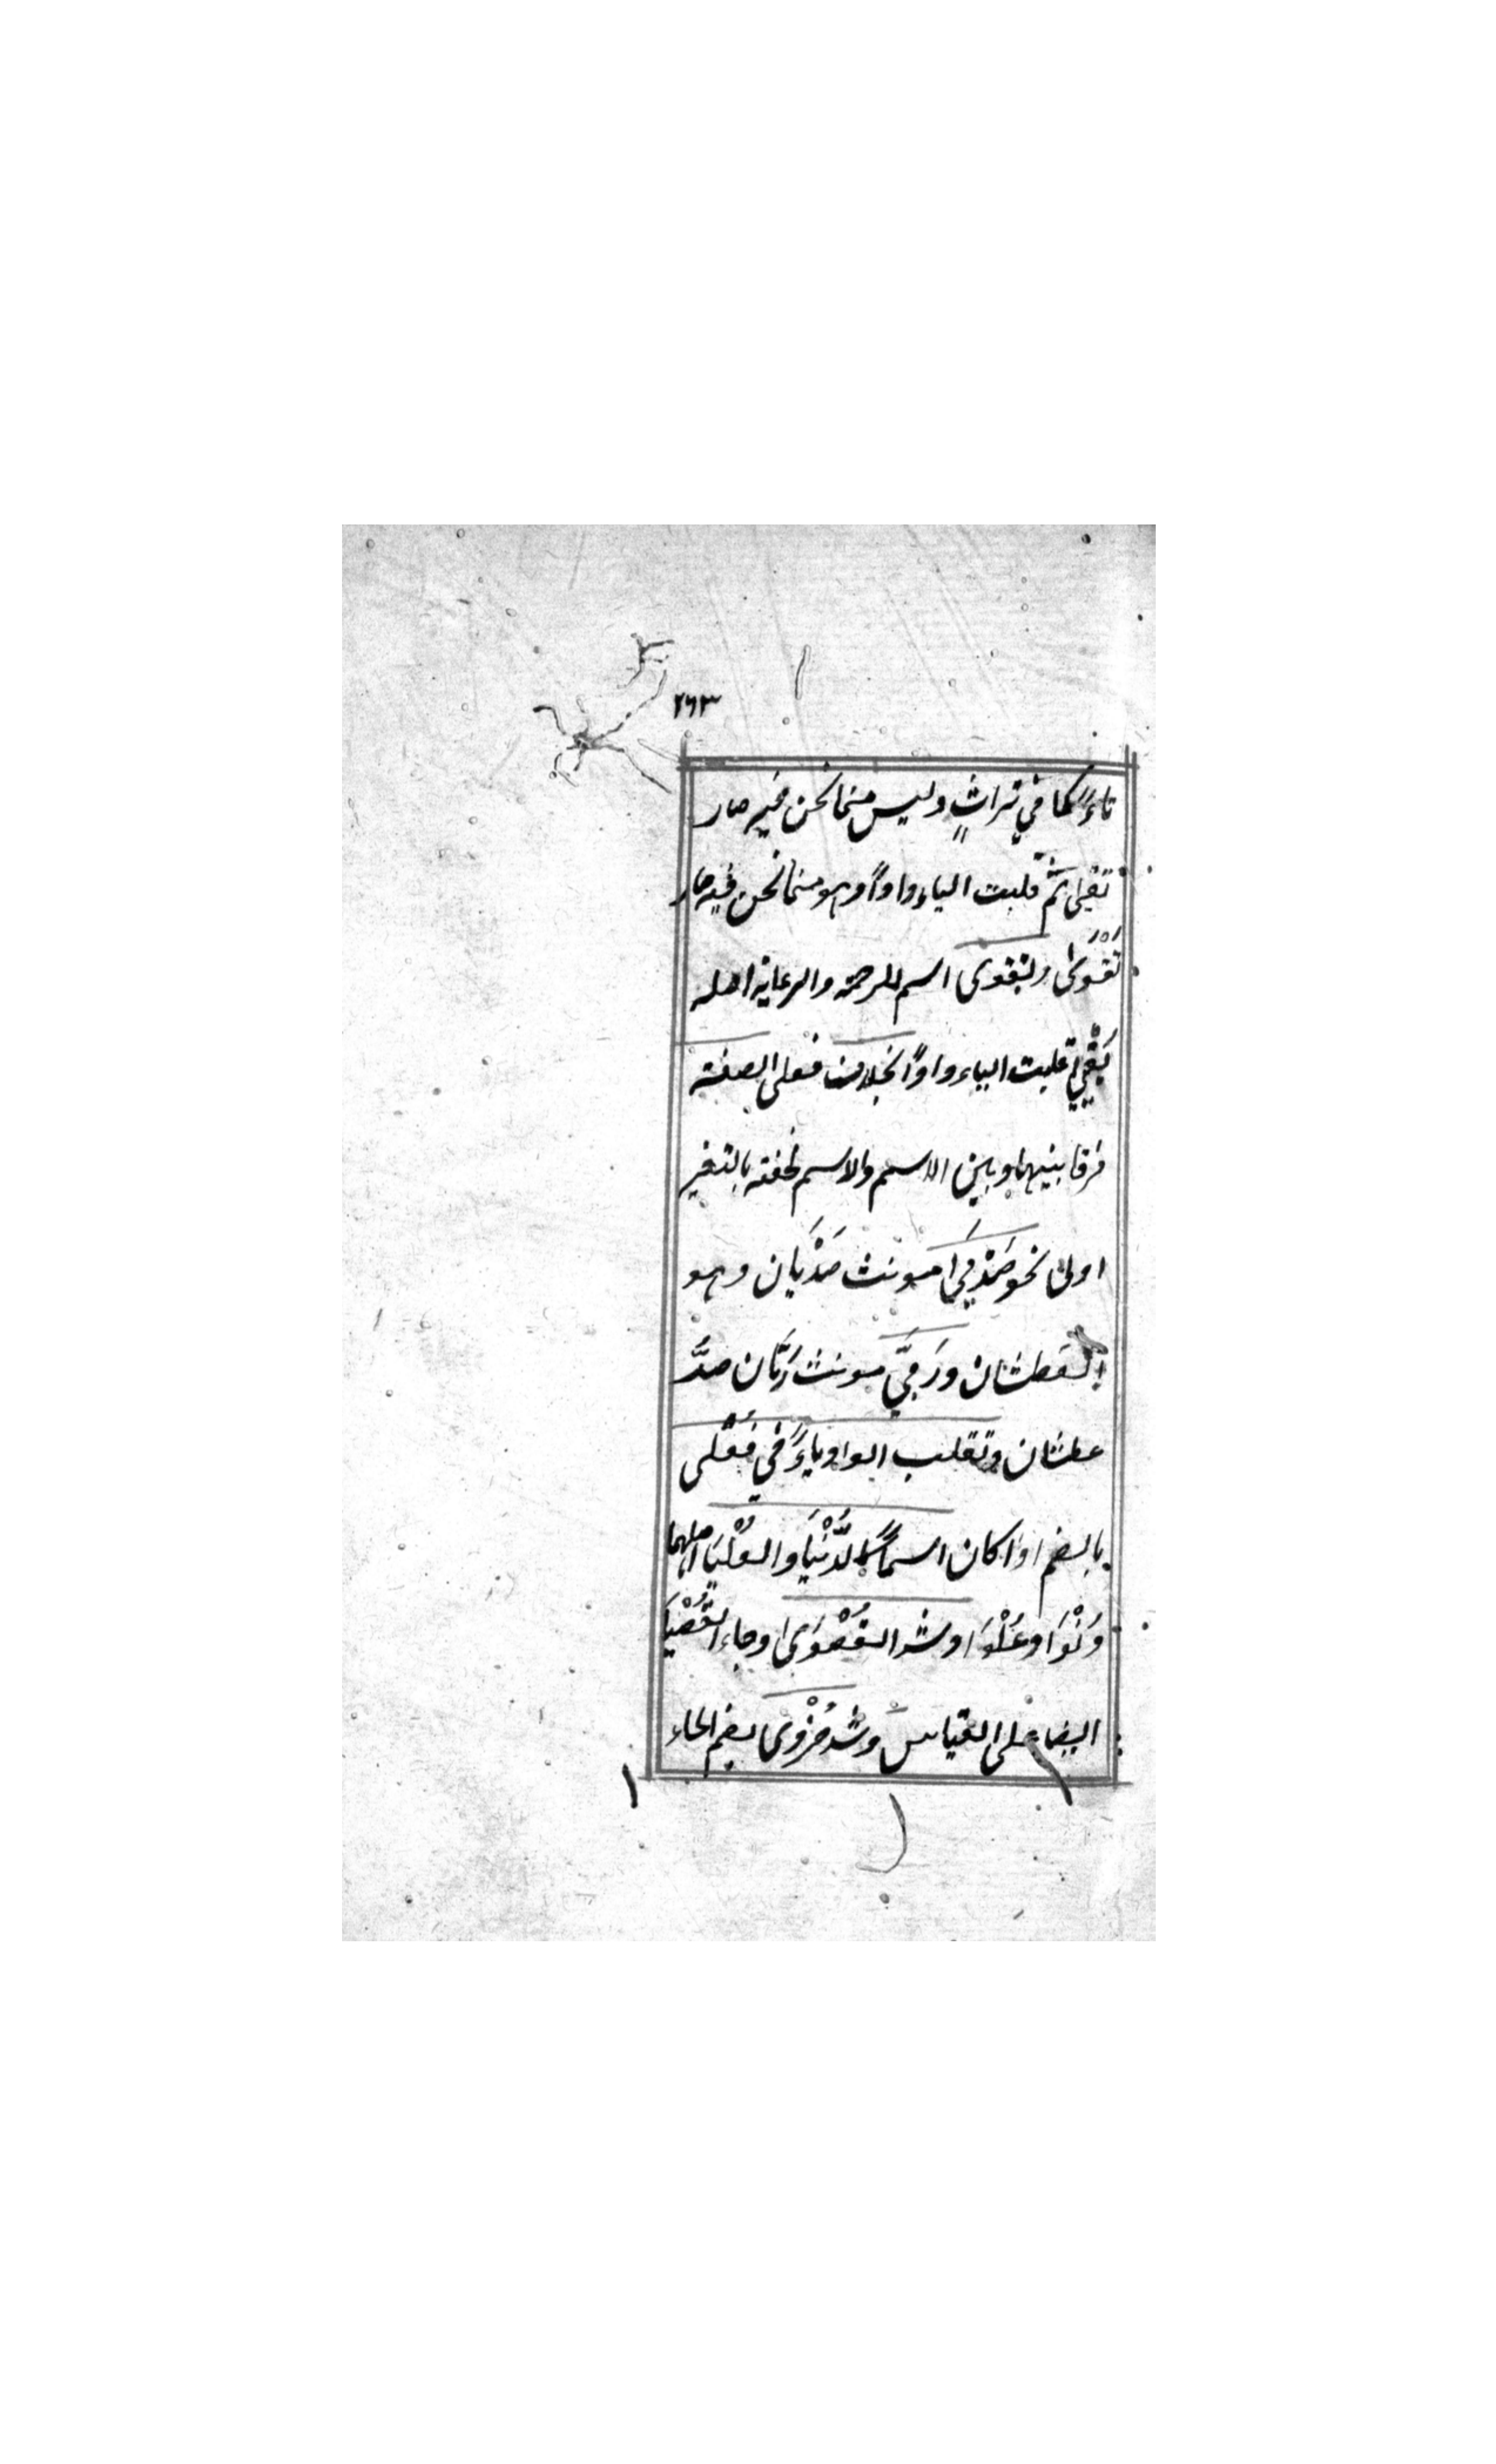 ٢٦٣
تاءً كما في تراثٍ وليس مما نحن فيه صار
تقيا ثم قلبت الياء واوًا وهو مما نحن فيه صار
تَقْوَىٰ والبقوى اسم للرحمة والرعاية اصله
بَقْيَا قلبت الياء واوًا بخلاف فعلى الصفة
فرقا بينهما وبين الاسم والاسم لخفته بالتغير
اولى نحو صَدْيَا مونث صَدْيَان وهو
العطشان ورَيَّى مونث رَيَّان ضدّ
عطشان وتقلب الواو ياءً في فُعْلى
بالضم اذا كان اسمًا كالدُّنْيَا والعُلْيَا اصلهما
دُنْوَا وعُلْوَا وشذ القُصْوَىٰ وجاء القُصْيَا
ايضا على القياس وشذ حُزْوى بضم الحاء